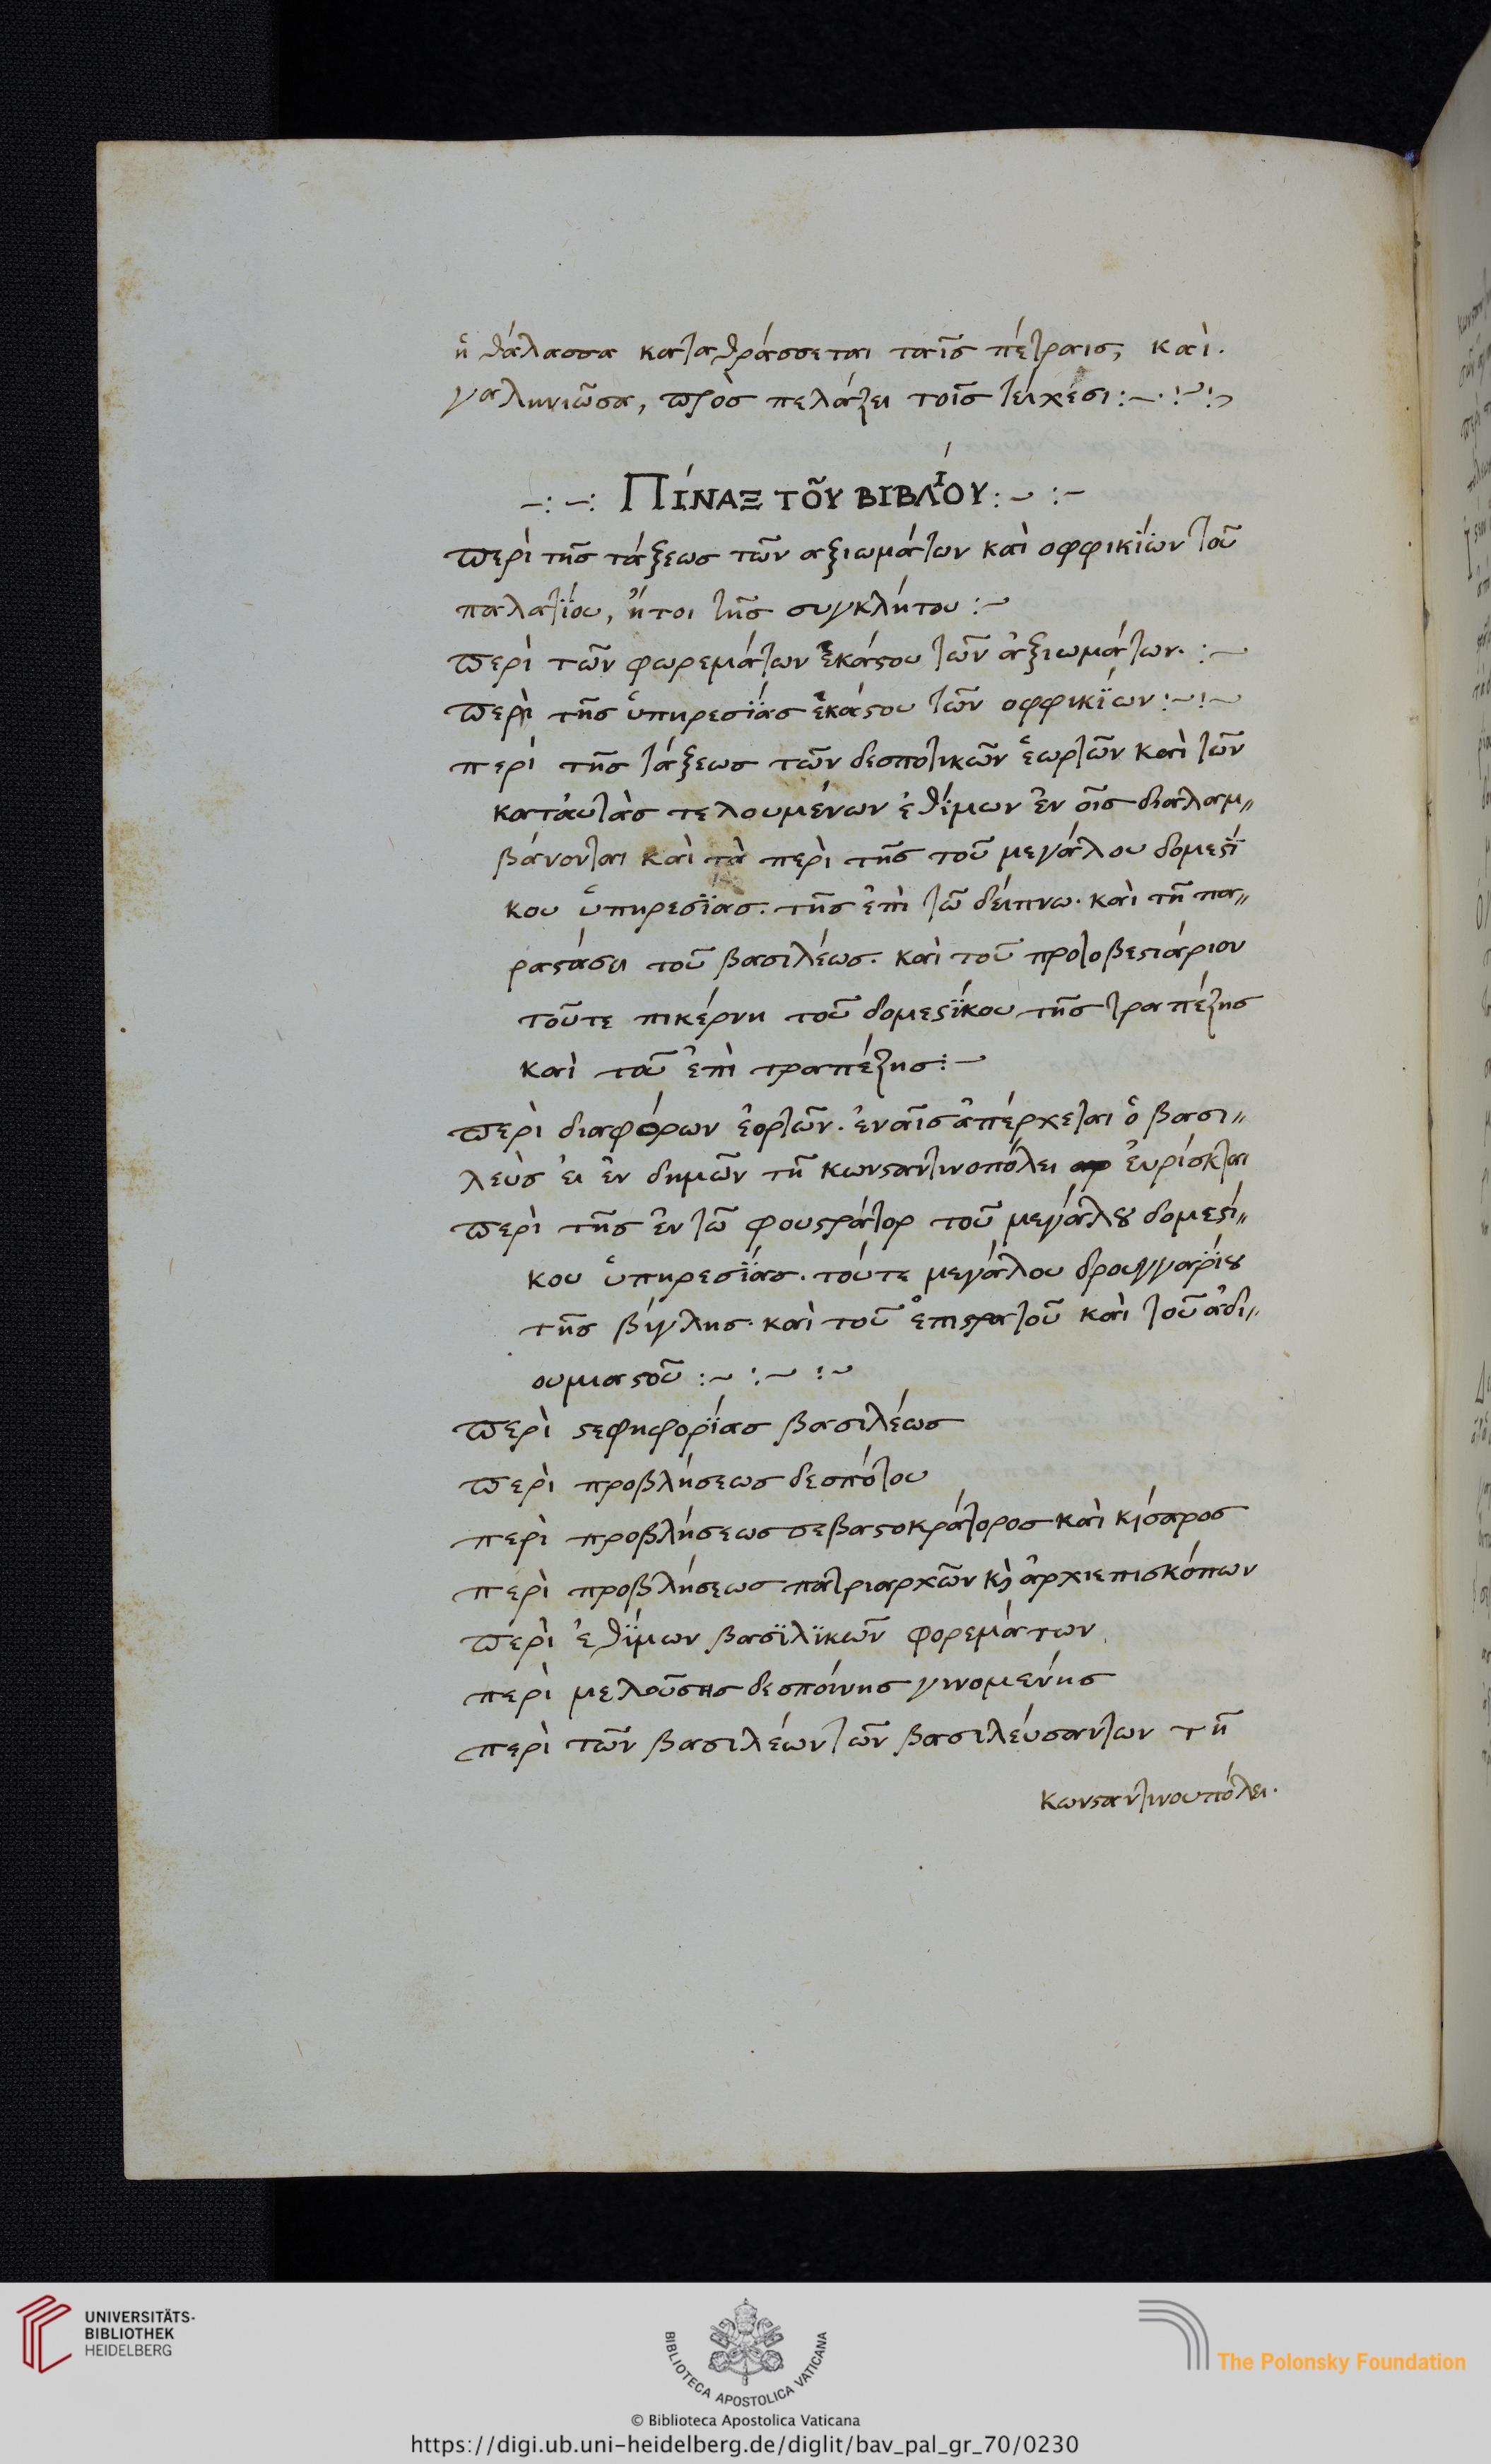 ἡ θάλασσα καταθράσσεται ταῖς πέτραις, καὶ.
γαληνιῶσα, πρὸς πελάζει τοῖς τείχεσι:—.:~:~
—:—: ΠΊΝΑΞ ΤΟῦ ΒΙΒΛΊΟΥ:~ :—
περὶ τῆς τάξεως τῶν αξιωμάτων καὶ οφφικΐων τοῦ
παλατΐου, ἤτοι τῆς συγκλήτου :~
περὶ τῶν φωρεμάτων ἑκάϛου τῶν ἀξιωμάτων. :~
περὶ τῆς ὑπηρεσΐας ἑκάϛου τῶν οφφικΐων:~:~
περὶ τῆς τάξεως τῶν δεσποτικῶν ἑωρτῶν καὶ τῶν
κατἀυτὰς τελουμένων ἐθίμων ἐν οἷς διαλαμ〃
βάνονται καὶ τὰ περὶ τῆς τοῦ μεγάλου δομεϛΐ
κου ὑπηρεσΐας. τῆς ἐπὶ τῶ δείπνω. καὶ τῆ πα〃
ραϛάσει τοῦ βασιλέως. καὶ τοῦ προτοβεϛιάριου
τοῦτε πικέρνη τοῦ δομεϛΐκου τῆς τραπέζης
καὶ τοῦ ἐπὶ τραπέζης:~
περὶ διαφόρων ἑορτῶν. ἐναῖς ἀπέρχεται ὁ βασι〃
λεὺς ἐι ἐν δημῶν τῆ κωνϛαντινοπόλει ἑυρίσκται
περὶ τῆς ἐν τῶ φουϛράτορ τοῦ μεγάλȣ δομεϛί〃
κου ὑπηρεσΐας. τούτε μεγάλου δρουγγαρΐȣ
τῆς βίγλης. καὶ τοῦ ἐπιϛρατοῦ καὶ τοῦ ἀδι〃
ουμιαϛοῦ :~ :~ :~
περὶ ϛεφηφορΐας βασιλέως
περὶ προβλήσεως δεσπότου
περὶ προβλήσεως σεβαϛοκράτορος καὶ κίσαρος
περὶ προβλήσεως πατριαρχῶν κὶ ἀρχιεπισκόπων
περὶ ἐθΐμων βασϊλϊκῶν φορεμάτων
περὶ μελούσης δεσποίνης γινομενής
περὶ τῶν βασιλέων τῶν βασιλέυσαντων τῆ
κωνϛαντινουπόλει.
UNIVERSITÄTS-
BIBLIOTHEK
HEIDELBERG
BIBLIOTECA APOSTOLICA VATICANA
The Polonsky Foundation
© Biblioteca Apostolica Vaticana
https://digi.ub.uni-heidelberg.de/diglit/bav_pal_gr_70/0230